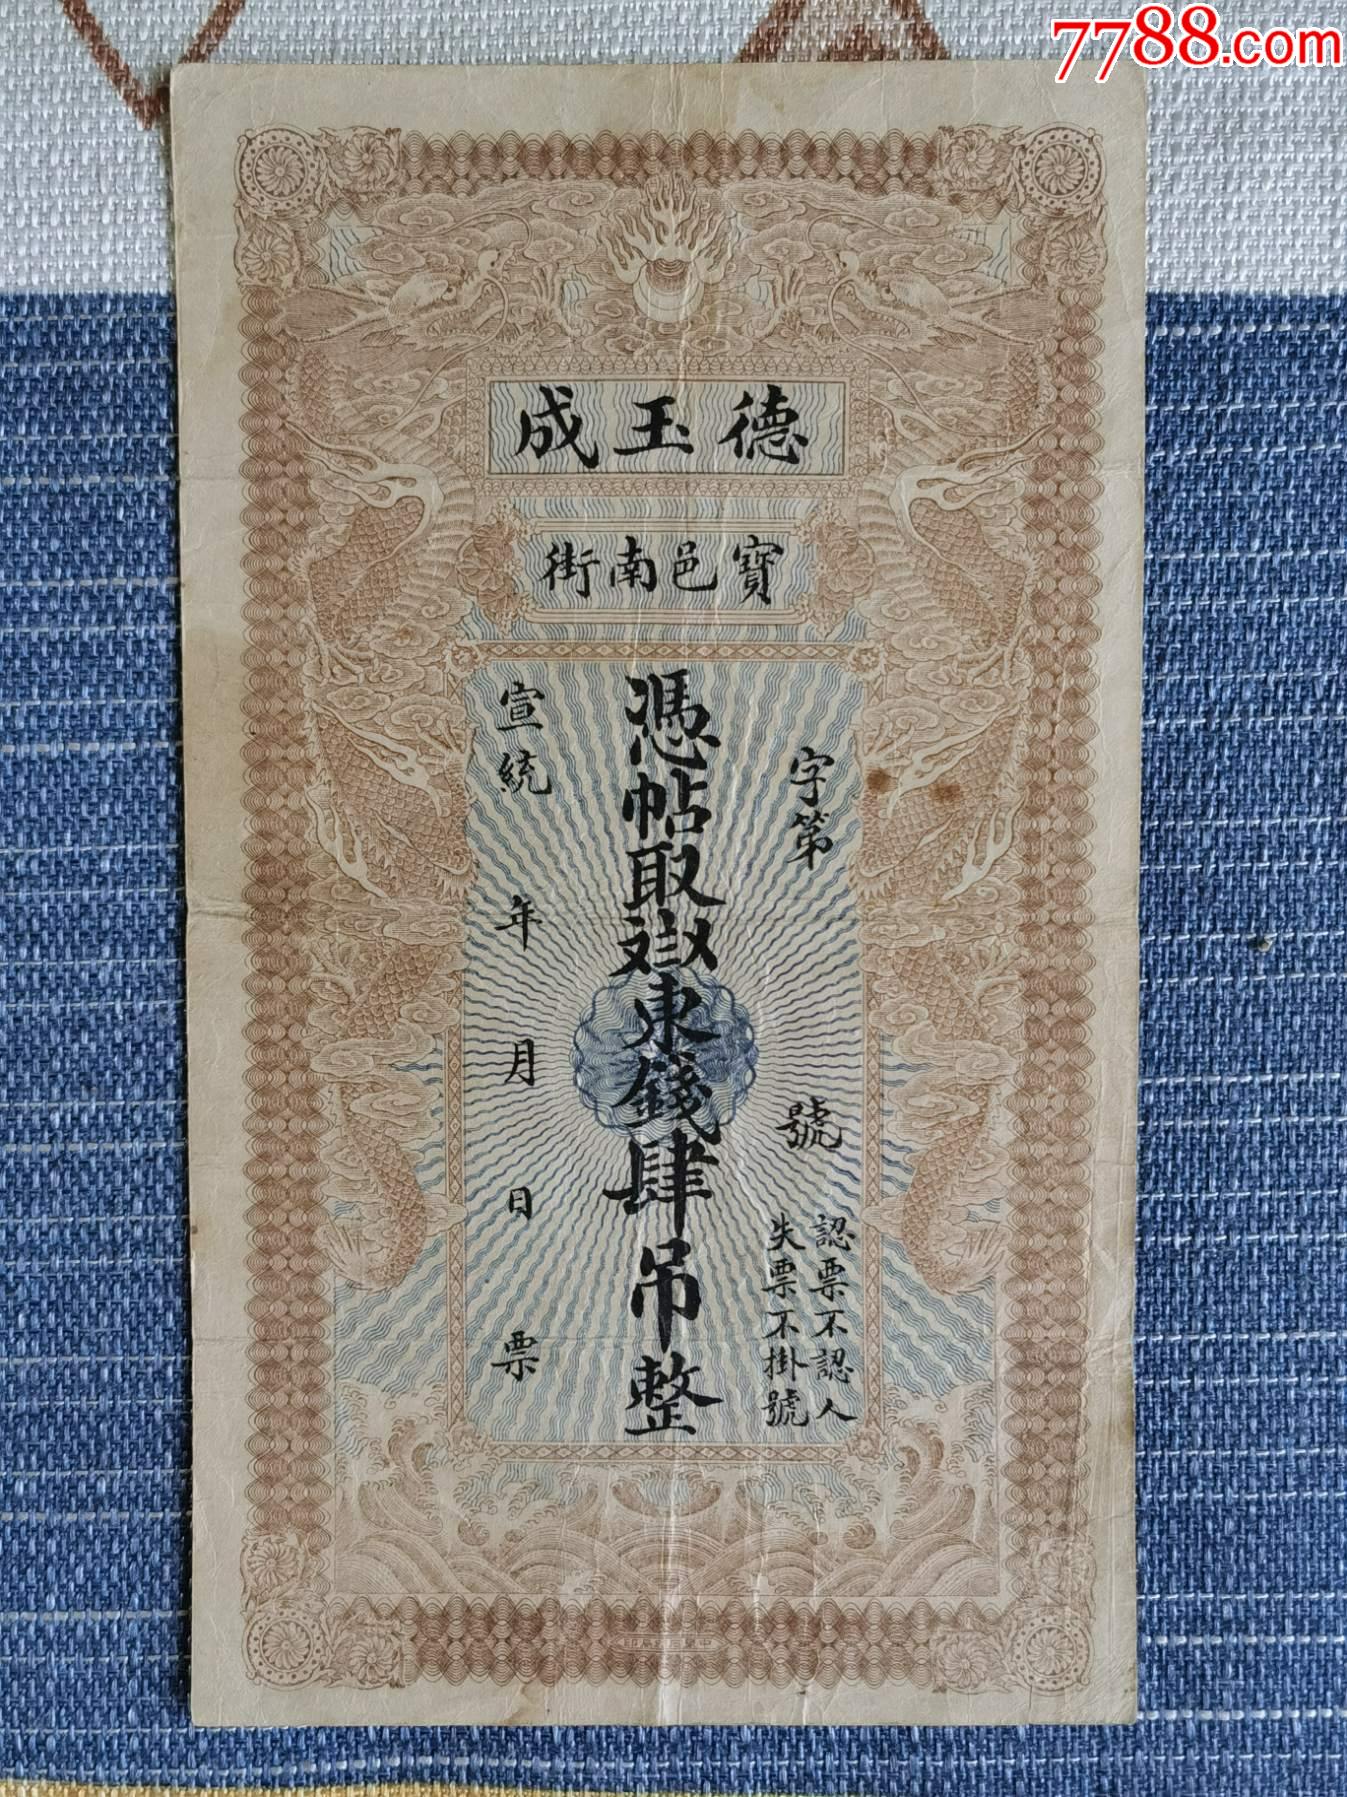 7788.com
德玉成
寶邑南街
字第 號
認票不認人
失票不掛號
憑帖取
東錢肆吊整
宣統 年 月 日 票